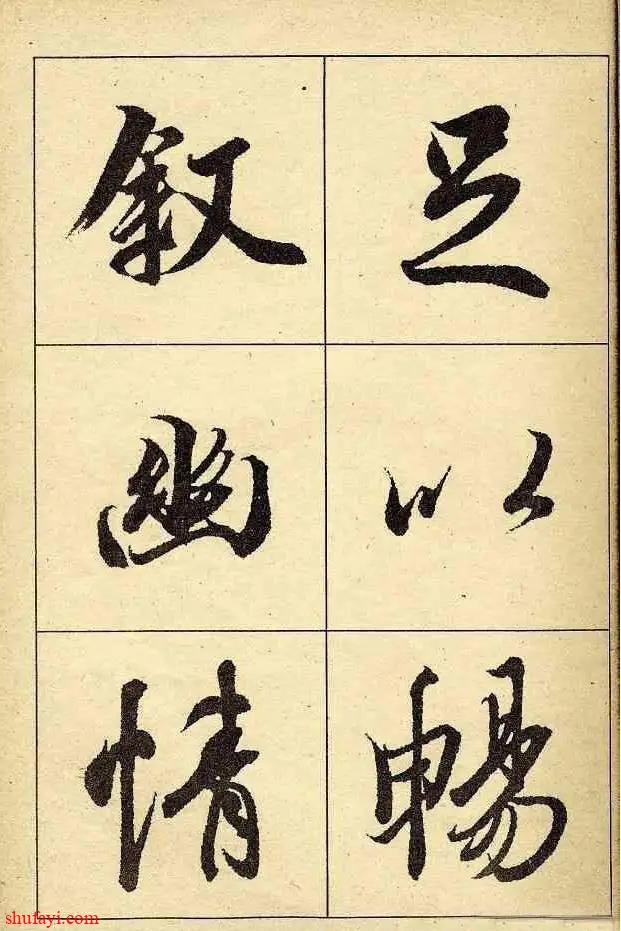 足以暢
敘幽情
shufayi.com